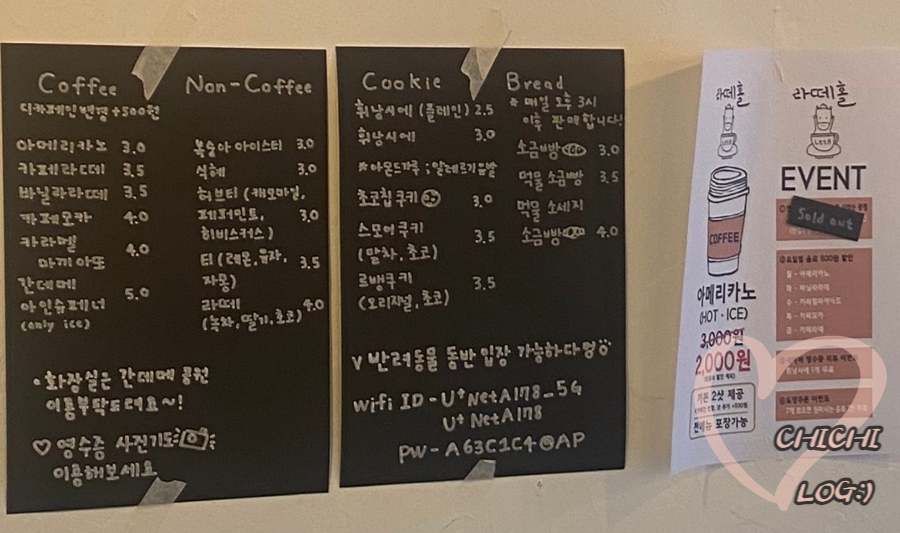 Coffee
디카페인변경+500원
아메리카노 3.0
카페라떼 3.5
바닐라라떼 3.5
카페모카 4.0
카라멜
마끼아또 4.0
간데메
아인슈페너 5.0
(only ice)
• 화장실은 간데메 공원
이용부탁드려요~!
♡ 영수증 사진기도
이용해보세요
Non-Coffee
복숭아 아이스티 3.0
식혜 3.0
허브티 (캐모마일,
페퍼민트, 3.0
히비스커스)
티 (레몬, 유자, 3.5
자몽)
라떼 4.0
(녹차, 딸기, 초코)
Cookie
휘낭시에 (플레인) 2.5
휘낭시에 3.0
*아몬드가루 ; 알레르기유발
초코칩쿠키 3.0
스모어쿠키 3.5
(말차, 초코)
르뱅쿠키 3.5
(오리지널, 초코)
Bread
* 매일 오후 3시
이후 판매합니다!
소금빵 3.0
먹물 소금빵 3.5
먹물 소세지
소금빵 4.0
v 반려동물 동반 입장 가능하다멍
wifi ID - U+NetA178_5G
U+NetA178
PW - A63C1C4@AP
라떼홀
COFFEE
아메리카노
(HOT · ICE)
3,000원
2,000원
기본 2샷 제공
전메뉴 포장가능
라떼홀
Latte
EVENT
Sold out
②요일별 음료 500원 할인
월 - 아메리카노
화 - 바닐라라떼
수 - 카라멜마끼아또
목 - 카페모카
금 - 카페라떼
CHICHI
LOG:)